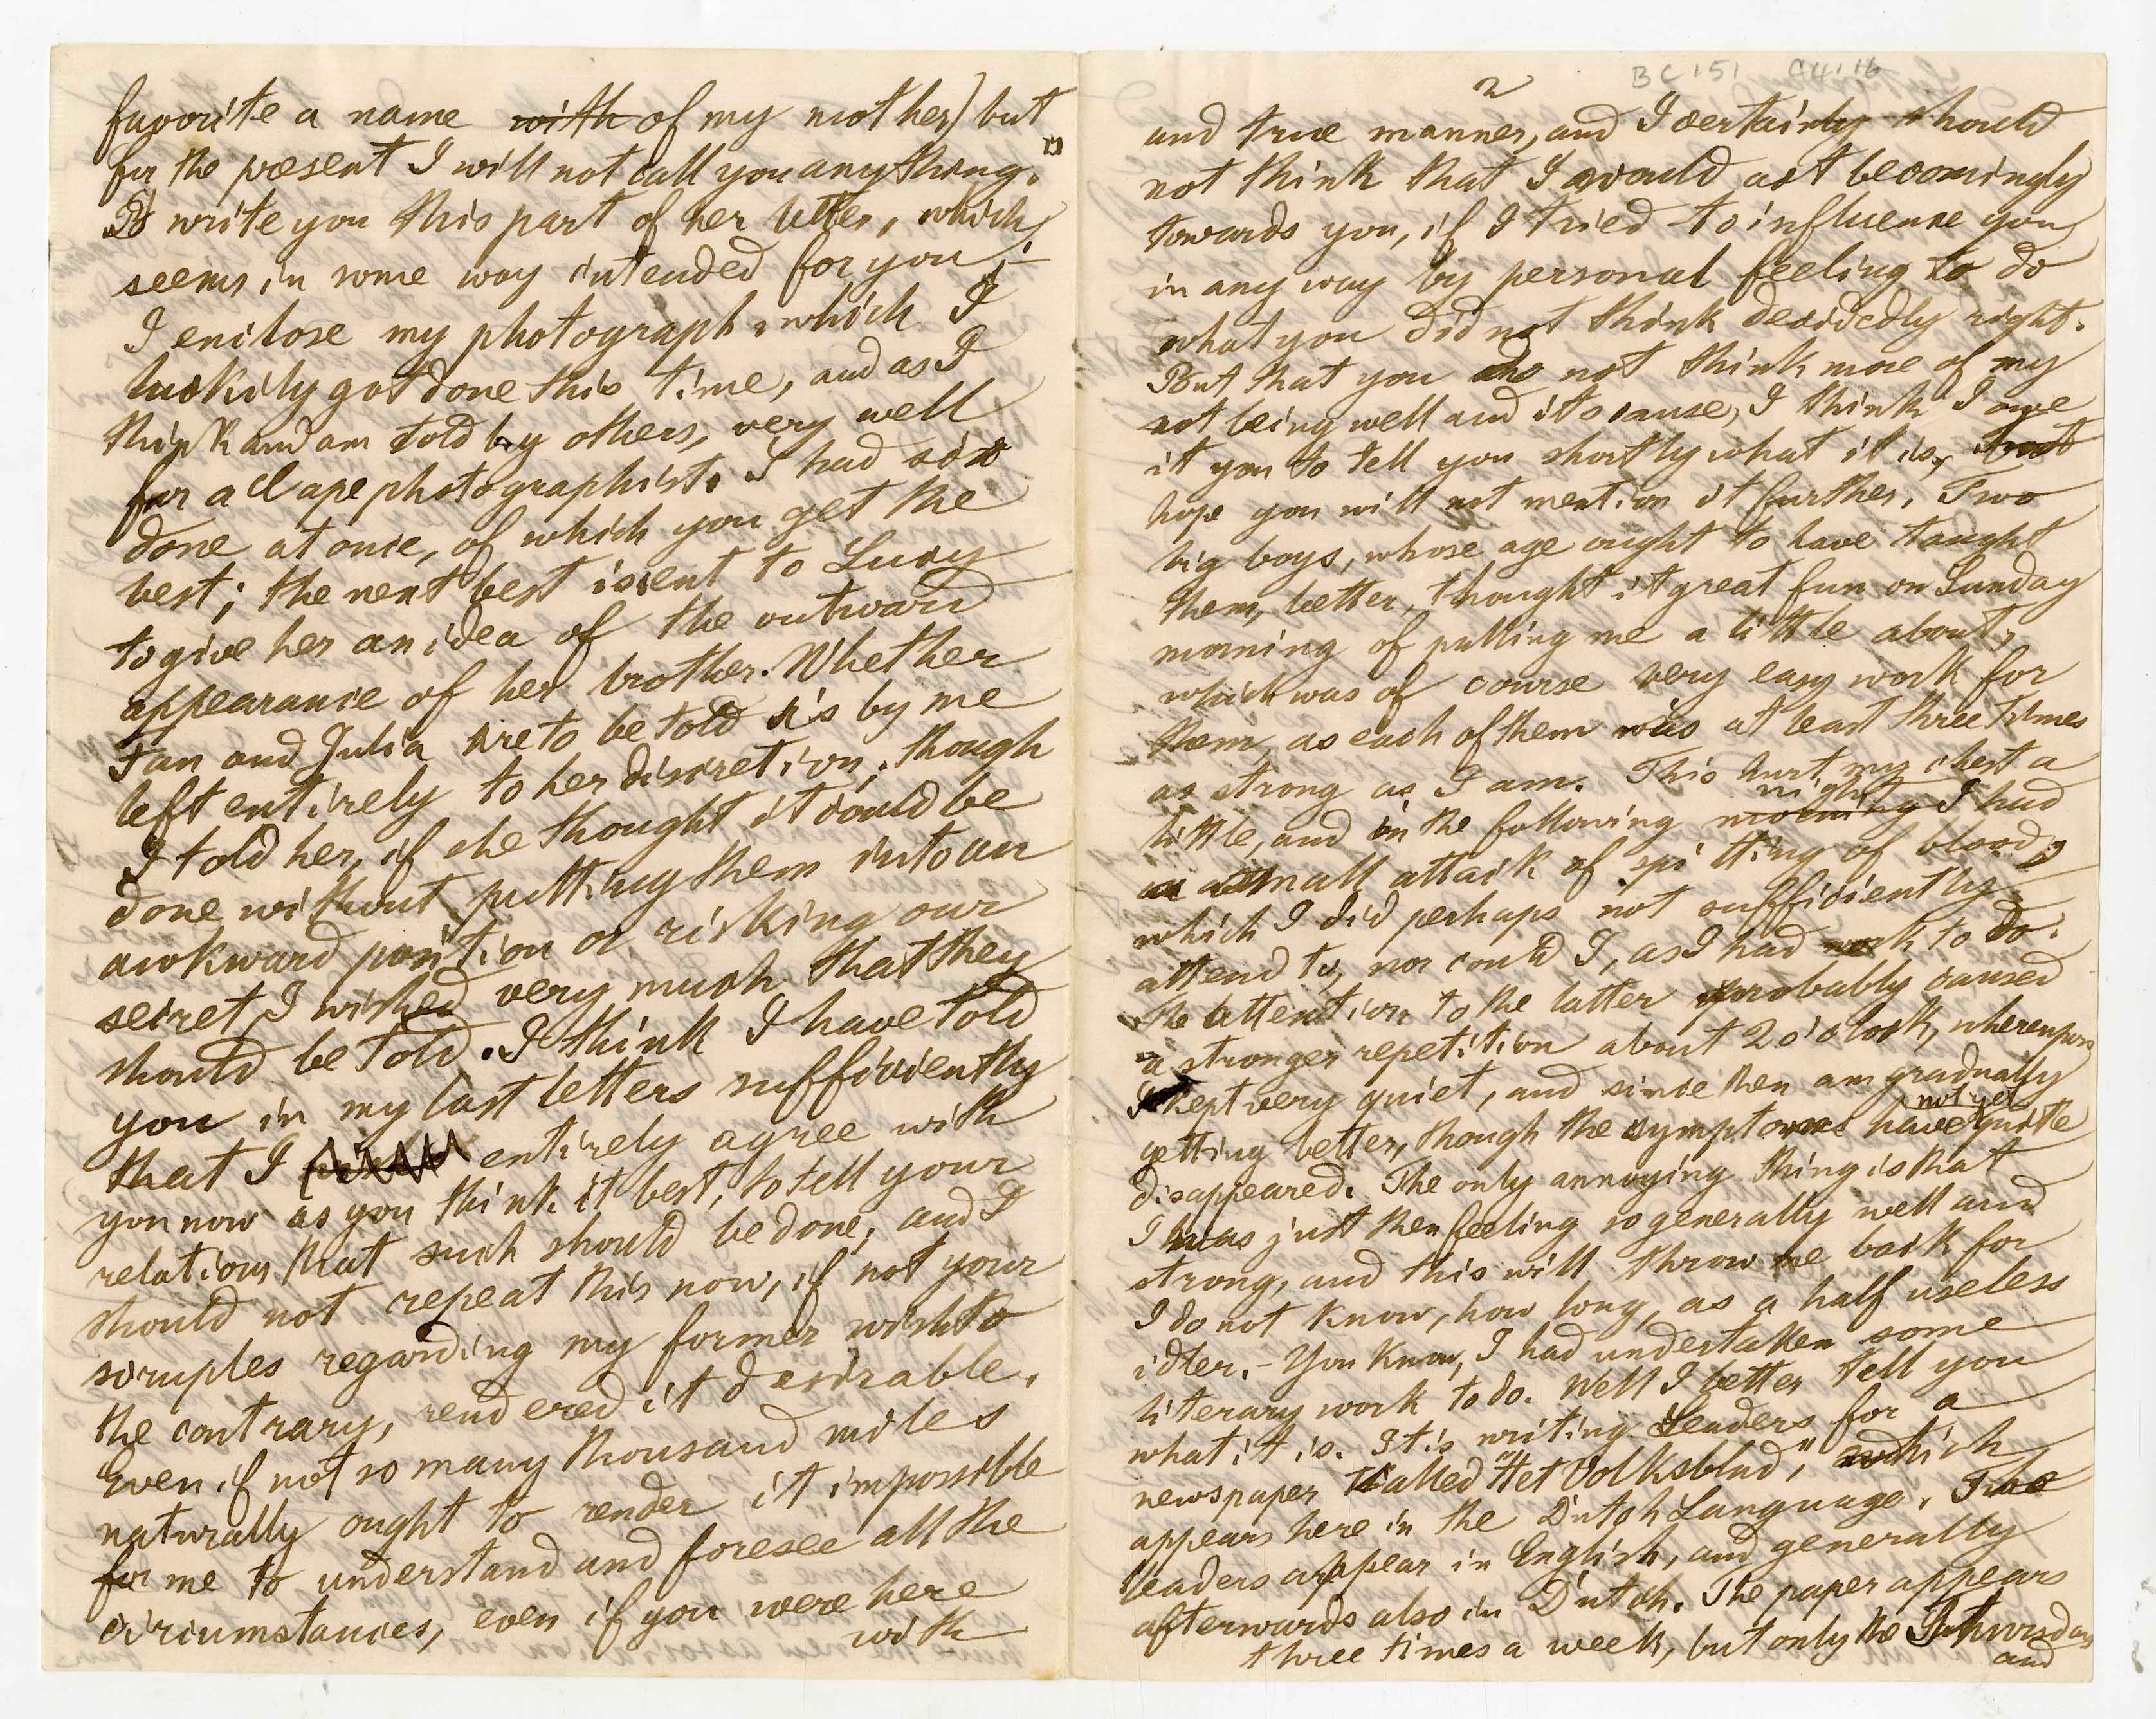 favorite a name with of my mother) but
for the present I will not call you anything."
I write you this part of her letter, which
seems in some way intended for you;-
I enclose my photograph, which I
luckily got done this time, and as I
think and am told by others, very well
for a Cape photographist. I had six
done at once, of which you get the
best; the next best is sent to Lucy
to give her an idea of the outward
appearance of her brother. Whether
Jan and Julia are to be told is by me
left entirely to her discretion, though
I told her, if she thought it could be
done without putting them into an
awkward position or risking our
secret, I wished very much that they
should be told. I think I have told
you in my last letters sufficiently
that I entirely agree with
you now as you think it best, to tell your
relations that such should be done, and I
should not repeat this now, if not your
scruples regarding my former wish to
the contrary, rendered it desirable.
Even if not so many thousand miles
naturally ought to render it impossible
for me to understand and foresee all the
circumstances, even if you were here
with
BC 151 C4:16
2
and true manner, and I certainly should
not think that I would act becomingly
towards you, if I tried to influence you
in any way by personal feeling to do
what you did not think decidedly right.
But that you do not think more of my
not being well and its cause, I think I owe
it you to tell you shortly what it is, but
hope you will not mention it further. Two
big boys, whose age ought to have taught
them better, thought it great fun on Sunday
morning of pulling me a little about,
which was of course very easy work for
them, as each of them was at least three times
as strong as I am. This hurt my chest a
little, and in the following morning night I had
a small attack of spitting of blood,
which I did perhaps not sufficiently
attend to, nor could I, as I had work to do.
The attention to the latter probably caused
a stronger repetition about 2 o'clock, whereupon
I kept very quiet, and since then am gradually
getting better, though the symptoms have not yet quite
disappeared. The only annoying thing is that
I was just then feeling so generally well and
strong, and this will throw me back for
I do not know, how long, as a half useless
idler. - You know, I had undertaken some
literary work to do. Well I better tell you
what it is. It is writing Leaders for a
newspaper called "Het Volksblad," which
appears here in the Dutch Language. The
leaders appear in English, and generally
afterwards also in Dutch. The paper appears
three times a week, but only the Thursday
and